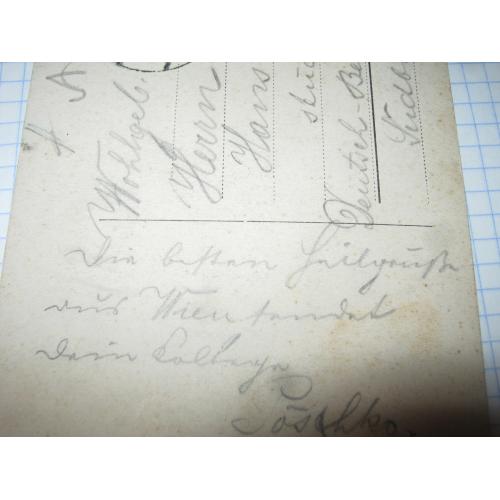 Wohlgeb.
Herrn
Hans
stud
Deutsch-Be
Südb
Die besten Heilgrüße
aus Wien sendet
Dein Kollege